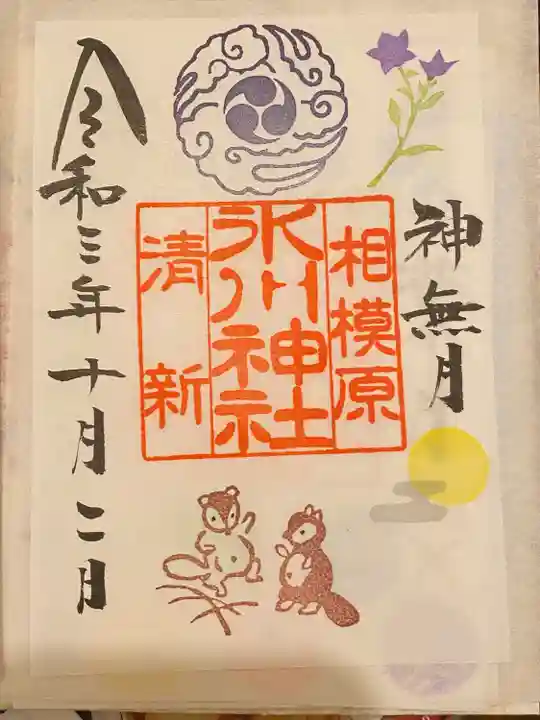 神無月
相模原
氷川神社
清新
令和三年十月二日